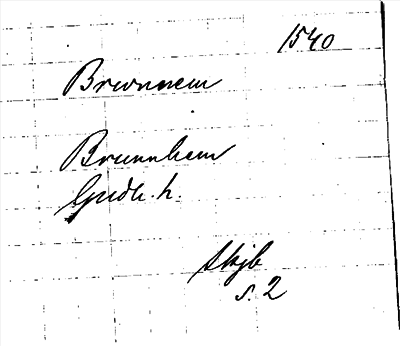 1540
Brunnem
Brunnhem
Gudh. h.
Skjb
s. 2